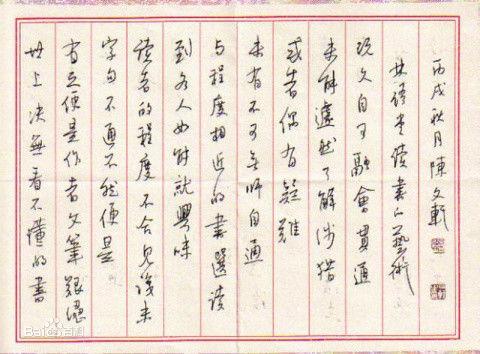 世上決無看不懂的書
有之便是作者文筆艱澀
字句不通不然便是
讀者的程度不合見識未
到各人如能就興味
與程度相近的書選讀
未有不可無師自通
或者偶有疑難
未能遽然了解涉獵
既久自可融會貫通
林語堂讀書的藝術
丙戌秋月陳文軒
Baidu百科